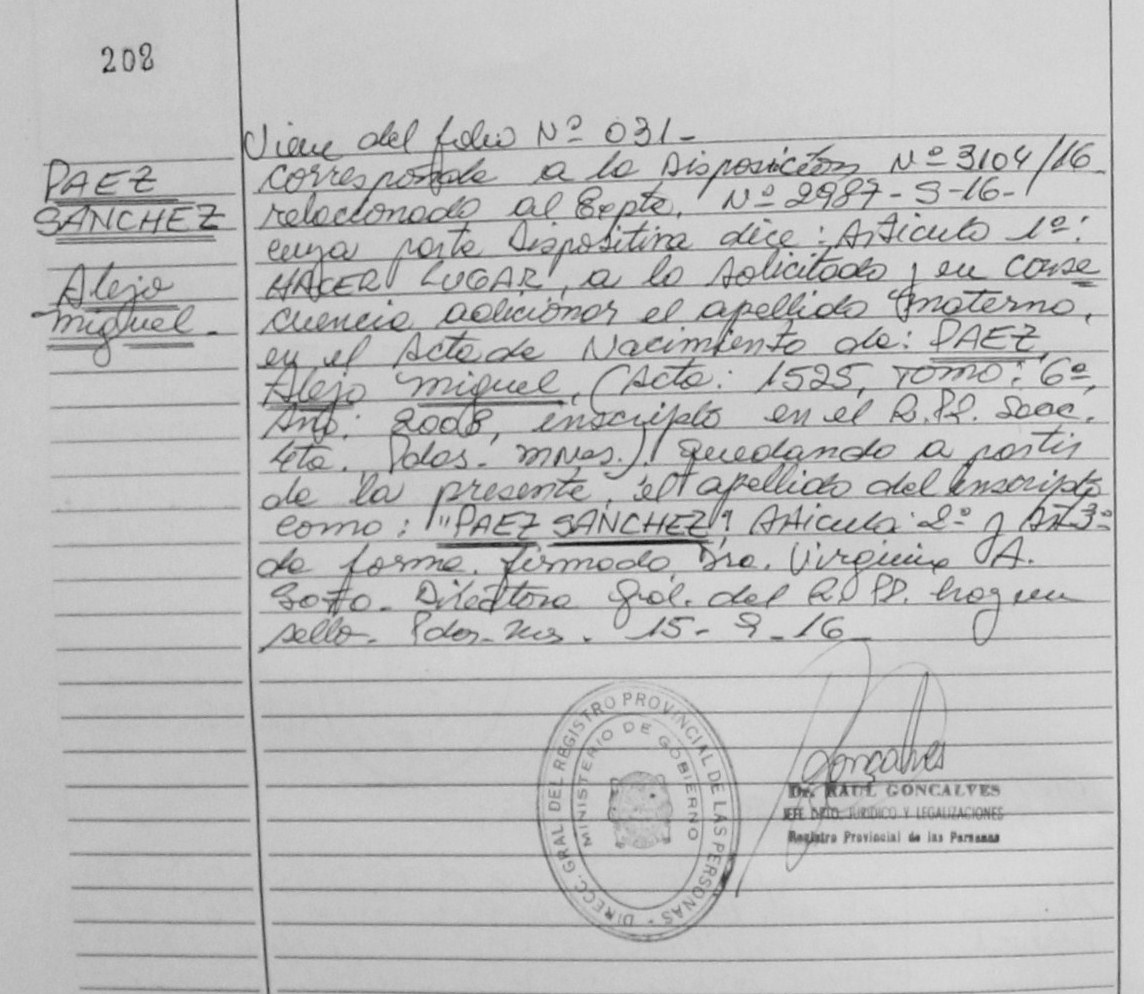 208
PAEZ
SANCHEZ
Alejo
Miguel.
Viene del folio Nº 031-
corresponde a la Disposición Nº 3104/16-
relacionado al Expte. Nº 2987-S-16-
cuya parte Dispositiva dice: Artículo 1º:
HACER LUGAR, a lo solicitado y en conse
cuencia adicionar el apellido materno,
en el Acta de Nacimiento de: PAEZ,
Alejo Miguel, (Acta: 1525, Tomo: 6º,
Año: 2008, inscripto en el R.P.P. Secc.
4ta. Pdas. Mnes.). Quedando a partir
de la presente, el apellido del inscripto
como: "PAEZ SANCHEZ". Articulo 2º y Art 3º
de forma. firmado, Dra. Virginia A.
Soto. Directora Gral. del R.P.PP. hay un
sello. Pdas-Mns. 15-9-16-
DIRECC. GRAL. DEL REGISTRO PROVINCIAL DE LAS PERSONAS -
MINISTERIO DE GOBIERNO
Gonçalves
Dr. RAUL GONCALVES
JEFE DPTO. JURIDICO Y LEGALIZACIONES
Registro Provincial de las Personas